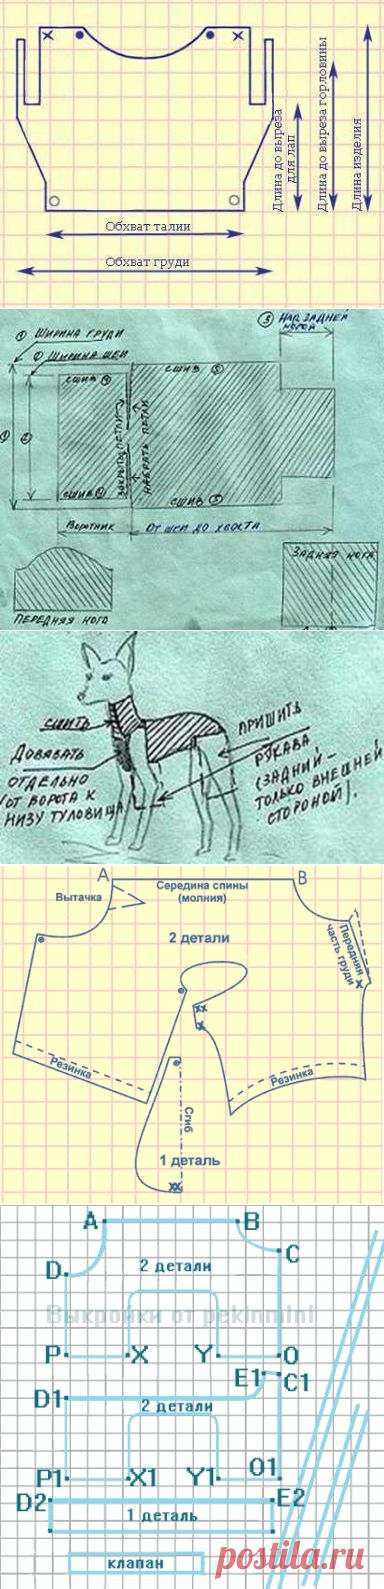 Длина до выреза для лап
Длина до выреза горловины
Длина изделия
Обхват талии
Обхват груди
③ НАД ЗАДНЕЙ
НОГОЙ
① ШИРИНА ГРУДИ
② ШИРИНА ШЕИ
СШИВ ④
СШИВ ⑤
①
②
ЗАКРЫТЬ ПЕТЛИ
НАБРАТЬ ПЕТЛИ
СШИВ ④
СШИВ ⑤
Воротник
ОТ ШЕИ ДО ХВОСТА
ЗАДНЯЯ НОГА
ПЕРЕДНЯЯ НОГА
СШИТЬ
ПРИШИТЬ
РУКАВА
(ЗАДНИЙ –
ТОЛЬКО ВНЕШНЕЙ
СТОРОНОЙ).
ДОВЯЗАТЬ
ОТДЕЛЬНО
(ОТ ВОРОТА К
НИЗУ ТУЛОВИЩА
A
B
Середина спины
(молния)
Вытачка
2 детали
Передняя
часть груди
X
XX
X
Резинка
Резинка
Сгиб
1 деталь
XX
A
B
C
D
2 детали
Выкройки от pekinmini
P
X
Y
O
E1
C1
D1
2 детали
P1
X1
Y1
O1
D2
E2
1 деталь
клапан
postila.ru